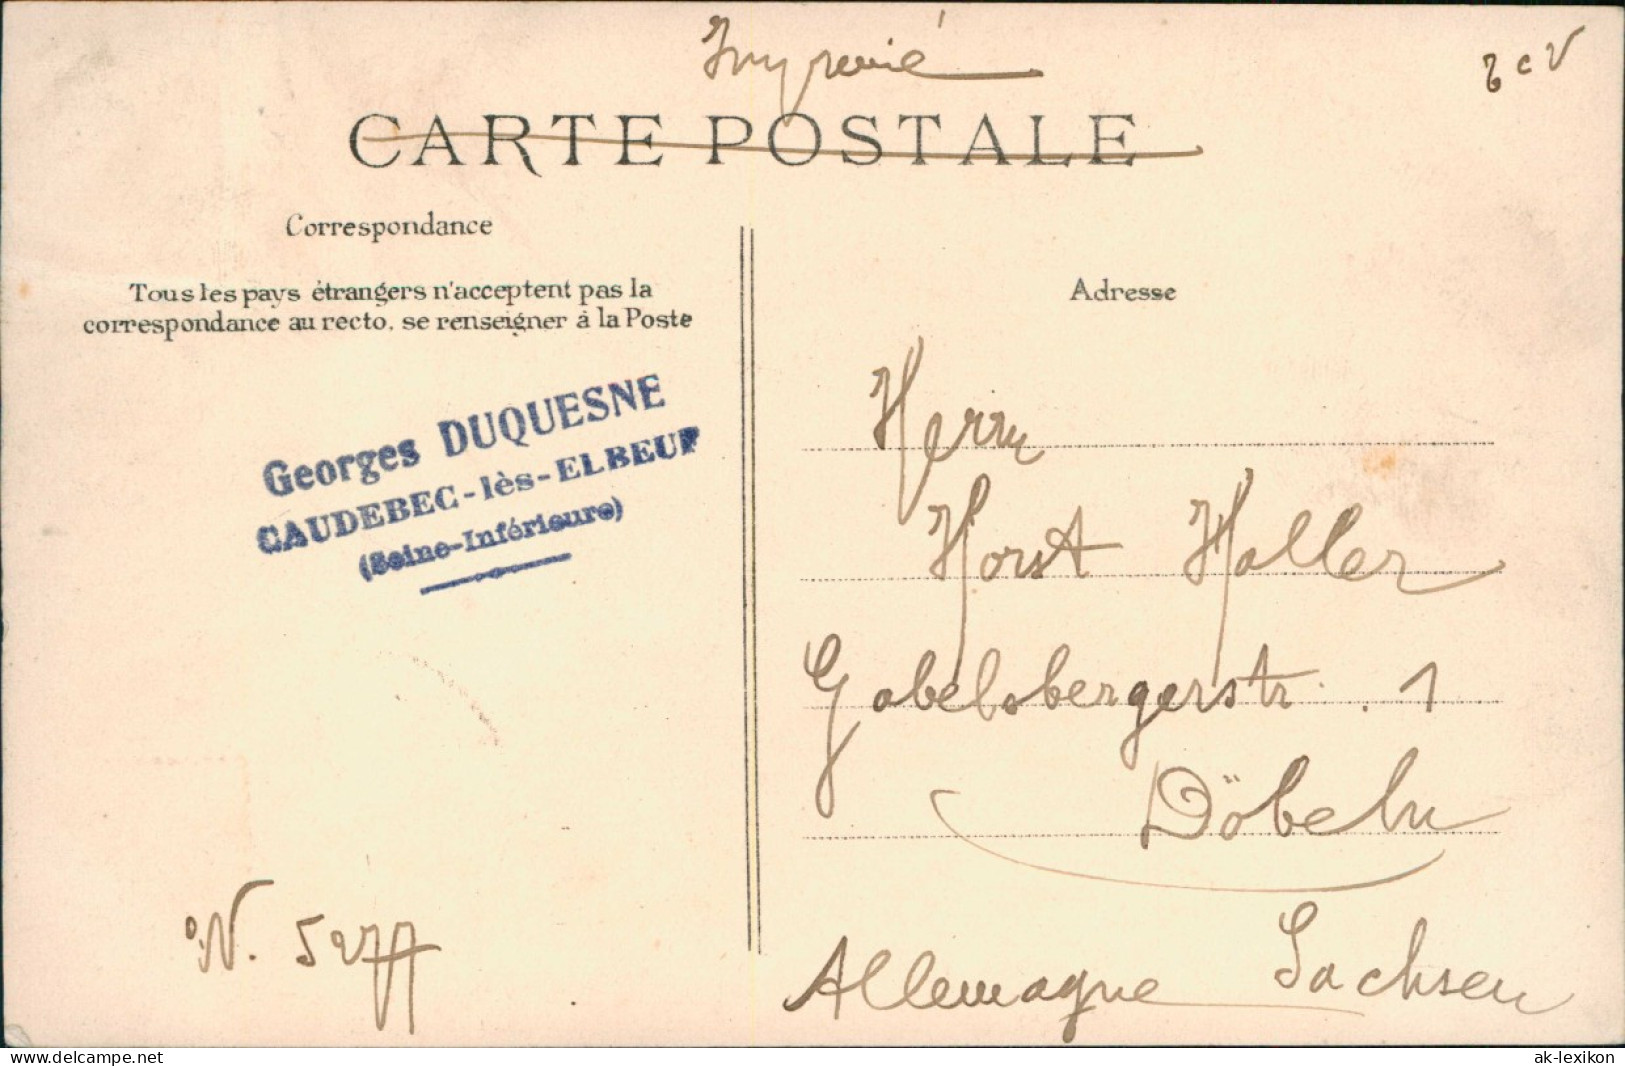 Imprimé
T c V
CARTE POSTALE
Correspondance
Tous les pays étrangers n'acceptent pas la
correspondance au recto, se renseigner à la Poste
Georges DUQUESNE
CAUDEBEC-lès-ELBEUF
(Seine-Inférieure)
N. 5277
Adresse
Herrn
Horst Haller
Gabelsbergerstr. 1
Döbeln
Sachsen
Allemagne
www.delcampe.net
ak-lexikon